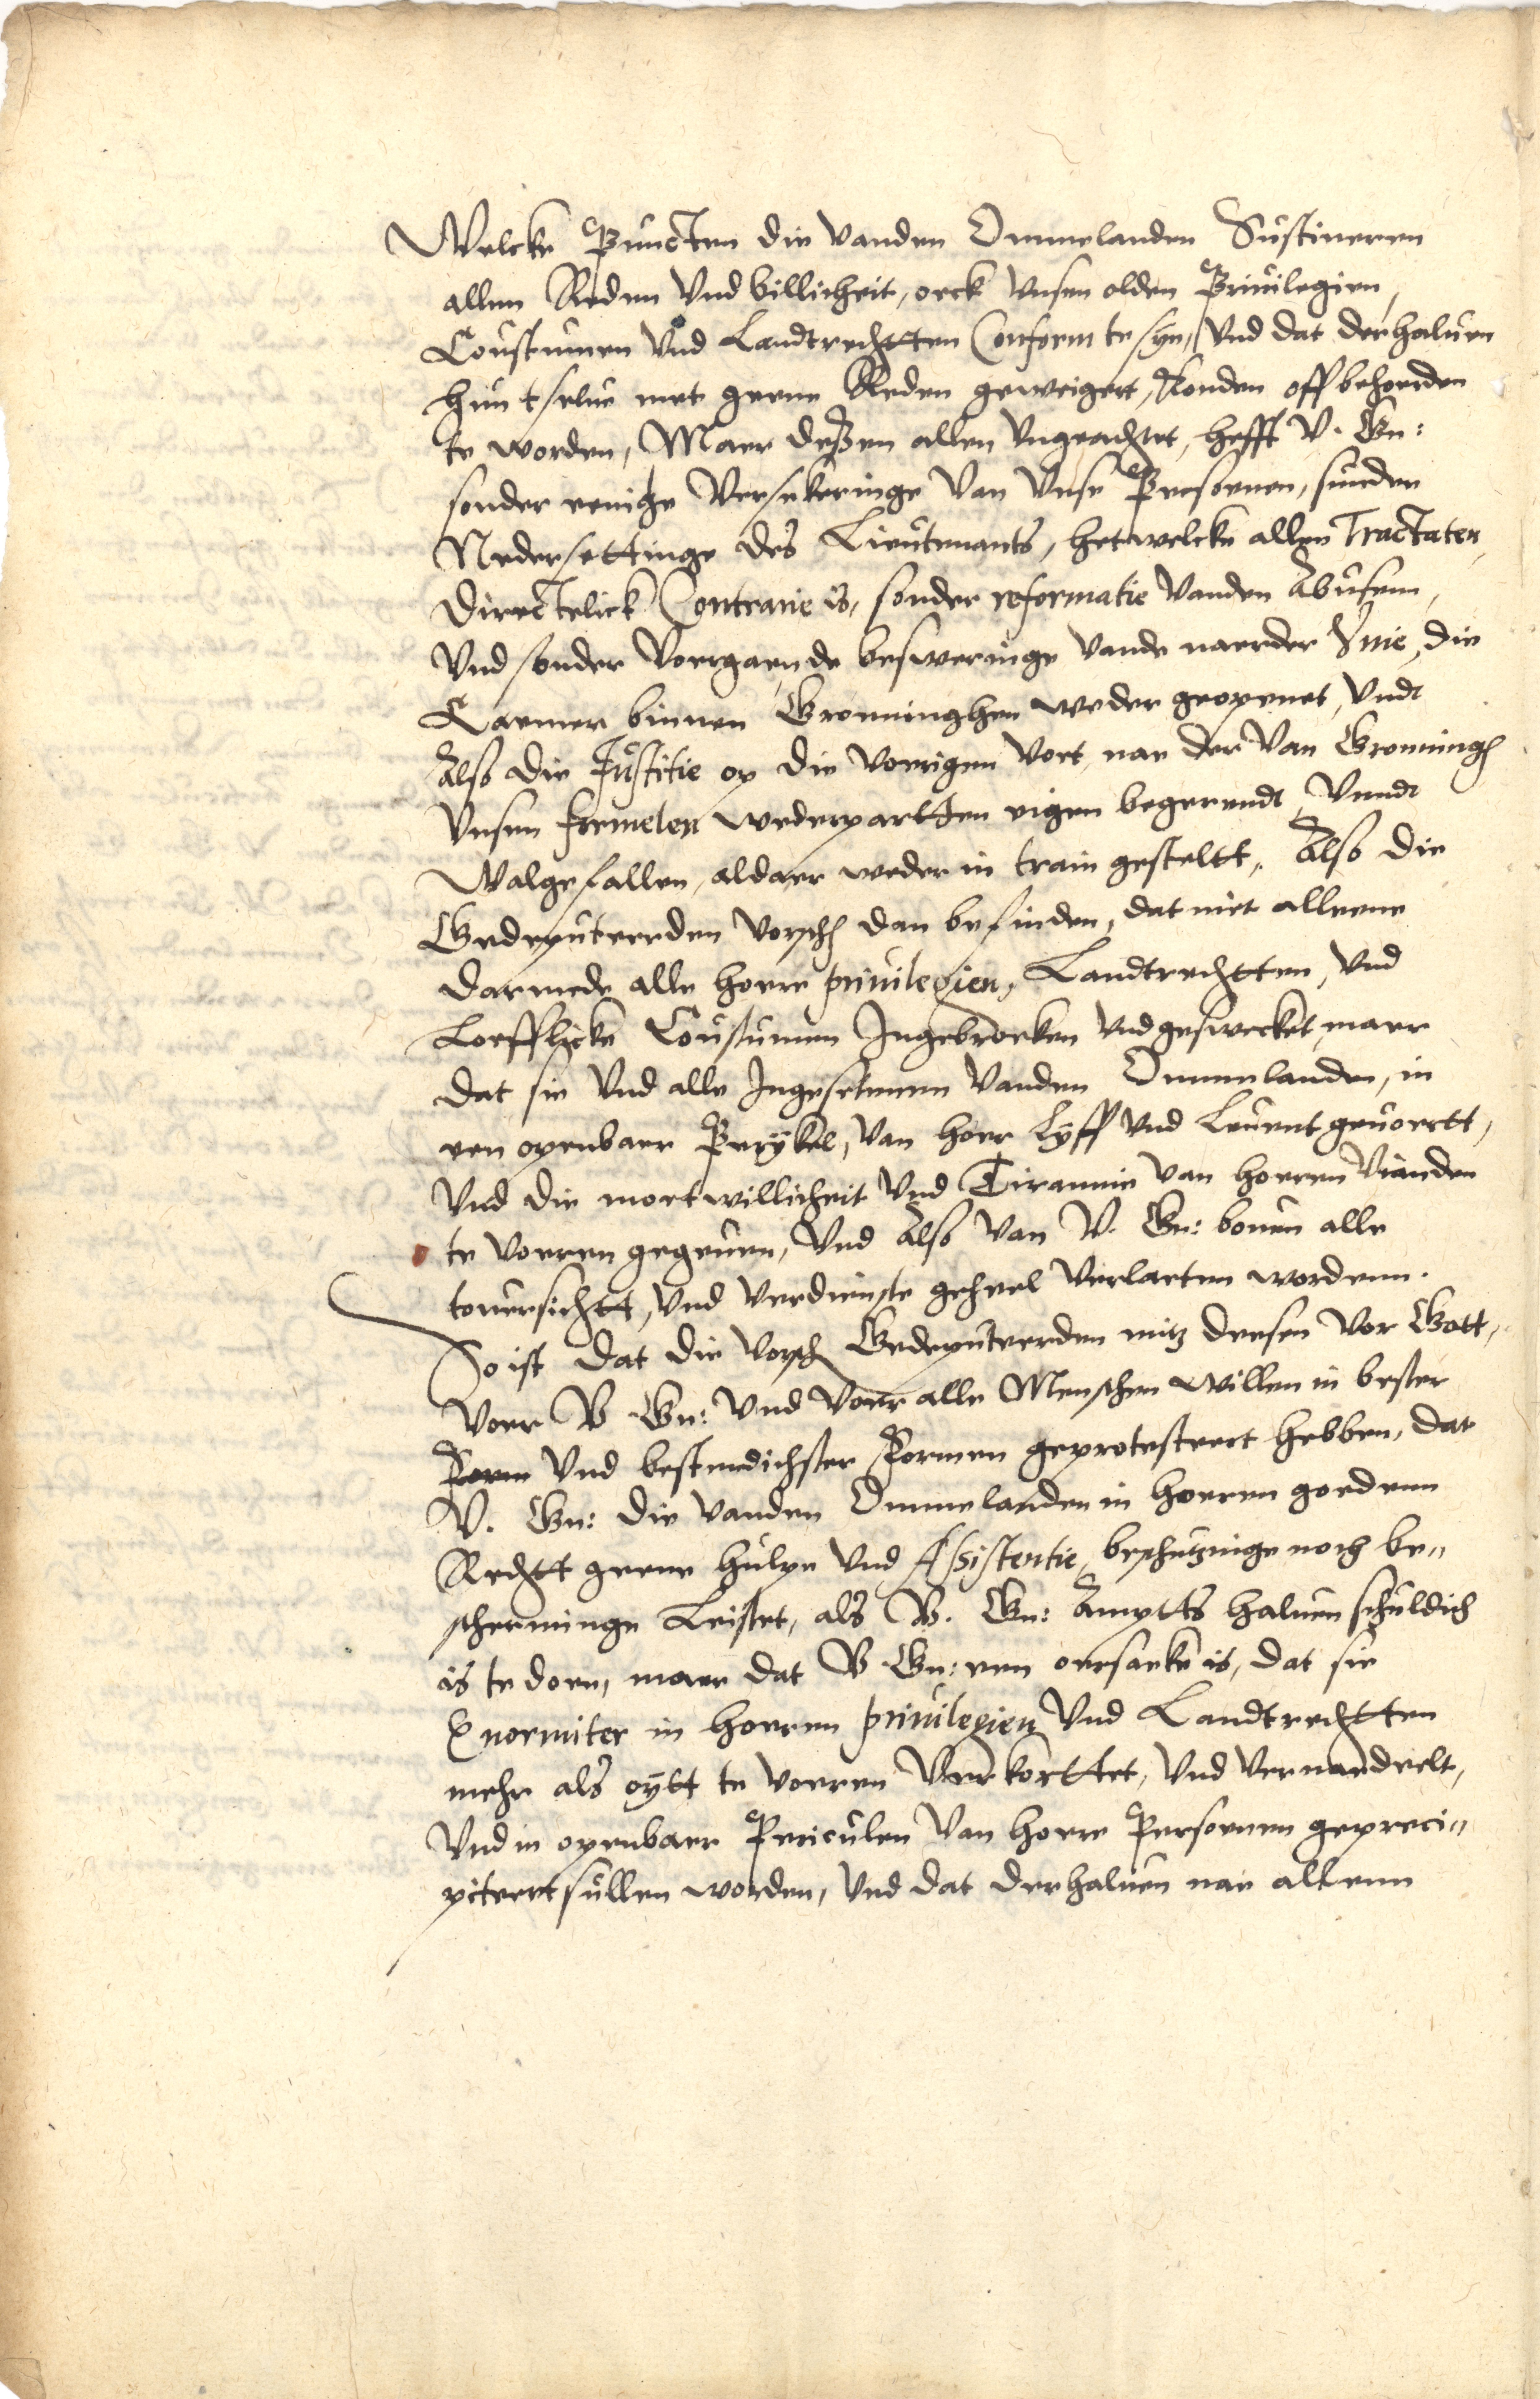 Welcke Puncten die vanden Ommelanden Sustineren
allen Reden vnd billicheit, oeck vnsen olden Priuilegien,
Coustumen vnd Landtrechtten Conform te syn, vnd dat derhaluen
hun t selue met geene Reden geweigert, konden off behoerden
te worden, Maer deßen allen vngeachtet, hefft V. Gn:
sonder eenighe Versekeringe van vnse Persoenen, sunder
Nedersettinge des Lieutenants, hetwelcke allen Tractaten
directelick Contrarie is, sonder reformatie vanden Abusen,
vnd sonder voergaende besweringe vande naerder Vnie, die
Caemer binnen Gronninghen weder geopenet, vndt
Also die Justitie op die voerigen voet, nae der van Groninngh
vnsen formelen wederpartten eigen begerendt, vnndt
Walgefallen, aldaer weder in train gesteltt, Also die
Gedeputeerden vorsch dan befinden, dat niet alleene
daermede alle hoere priuilegien, Landtrechtten, vnd
Loefflicke Coustumen Ingebroeken vnd geswecket, maer
dat sie vnd alle Ingesetenen vanden Ommelanden, in
een openbaer Perykel, van hoer Lyff vnd Leuent geuoertt,
vnd die moetwillicheit vnd Tirannie van hoeren vianden
te voeren gegeuen, vnd Also van V. Gn: bouen alle
touersichtt, vnd verdienste geheel verlaeten wordenn.
So ist dat die vorsch Gedeputeerden mitz deesen vor Gott,
voer V Gn: vnd voer alle Menschen willen in bester
Form vnd bestendichster Formen geprotesteert hebben, dat
V. Gn: die vanden Ommelanden in hoeren goedenn
Rechtt geene hulpe vnd Assistentie, beschutzinge noch be=
scherminge Leistet, als V. Gn: Ampts haluen schuldich
is te doen, maer dat V Gn: een oersaeke is, dat sie
Enormiter in hoeren priuilegien vnd Landtrechtten
mehr als oytt te voeren verkorttet, vnd vernaedeelt,
vnd in openbaer Periculen van hoere Persoenen gepreci=
piteert sullen worden, vnd dat derhaluen nae allenn